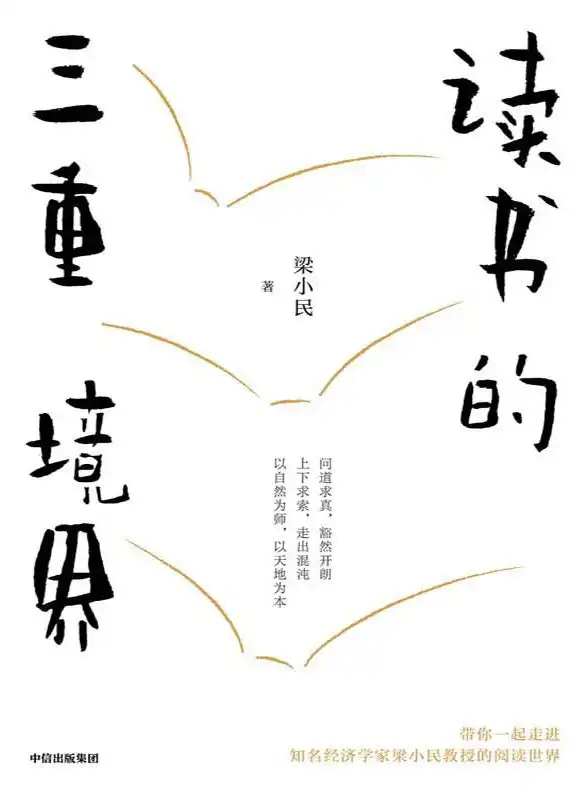 读书的
三重境界
梁小民
著
问道求真，豁然开朗
上下求索，走出混沌
以自然为师，以天地为本
带你一起走进
知名经济学家梁小民教授的阅读世界
中信出版集团